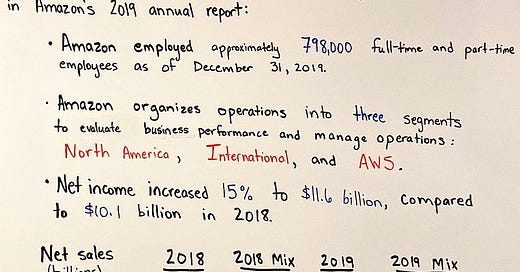 in Amazon's 2019 annual report:
• Amazon employed approximately 798,000 full-time and part-time
employees as of December 31, 2019.
• Amazon organizes operations into three segments
to evaluate business performance and manage operations:
North America, International, and AWS.
• Net income increased 15% to $11.6 billion, compared
to $10.1 billion in 2018.
Net sales 2018 2018 Mix 2019 2019 Mix
(billions)